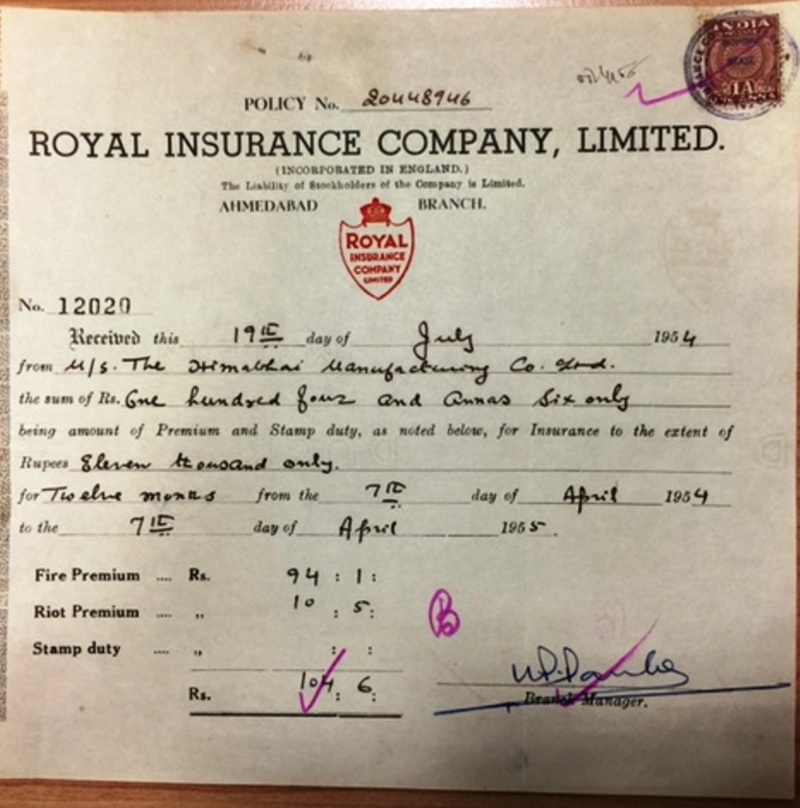 INDIA
1A
POLICY No. 20448946
ROYAL INSURANCE COMPANY, LIMITED.
(INCORPORATED IN ENGLAND.)
The Liability of Stockholders of the Company is Limited.
AHMEDABAD BRANCH.
ROYAL
INSURANCE
COMPANY
LIMITED
No. 12020
Received this 19th day of July 1954
from M/s. The Himabhai Manufacturing Co. Ltd.
the sum of Rs. One hundred four and Annas Six only
being amount of Premium and Stamp duty, as noted below, for Insurance to the extent of
Rupees Eleven thousand only.
for Twelve months from the 7th day of April 1954
to the 7th day of April 1955.
Fire Premium .... Rs. 94 : 1 :
Riot Premium .... „ 10 : 5 :
Stamp duty .... „ : :
Rs. 104 : 6 :
B
Branch Manager.